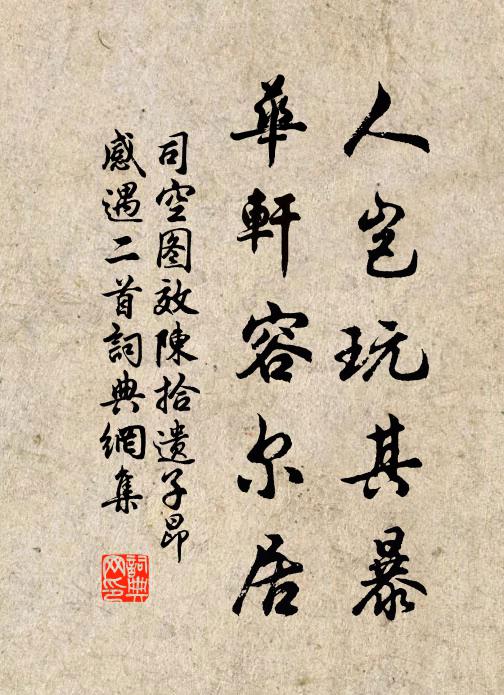 人岂玩其暴
華軒容尔居
司空图效陳拾遗子昂
感遇二首詞典網集
詞典
网印